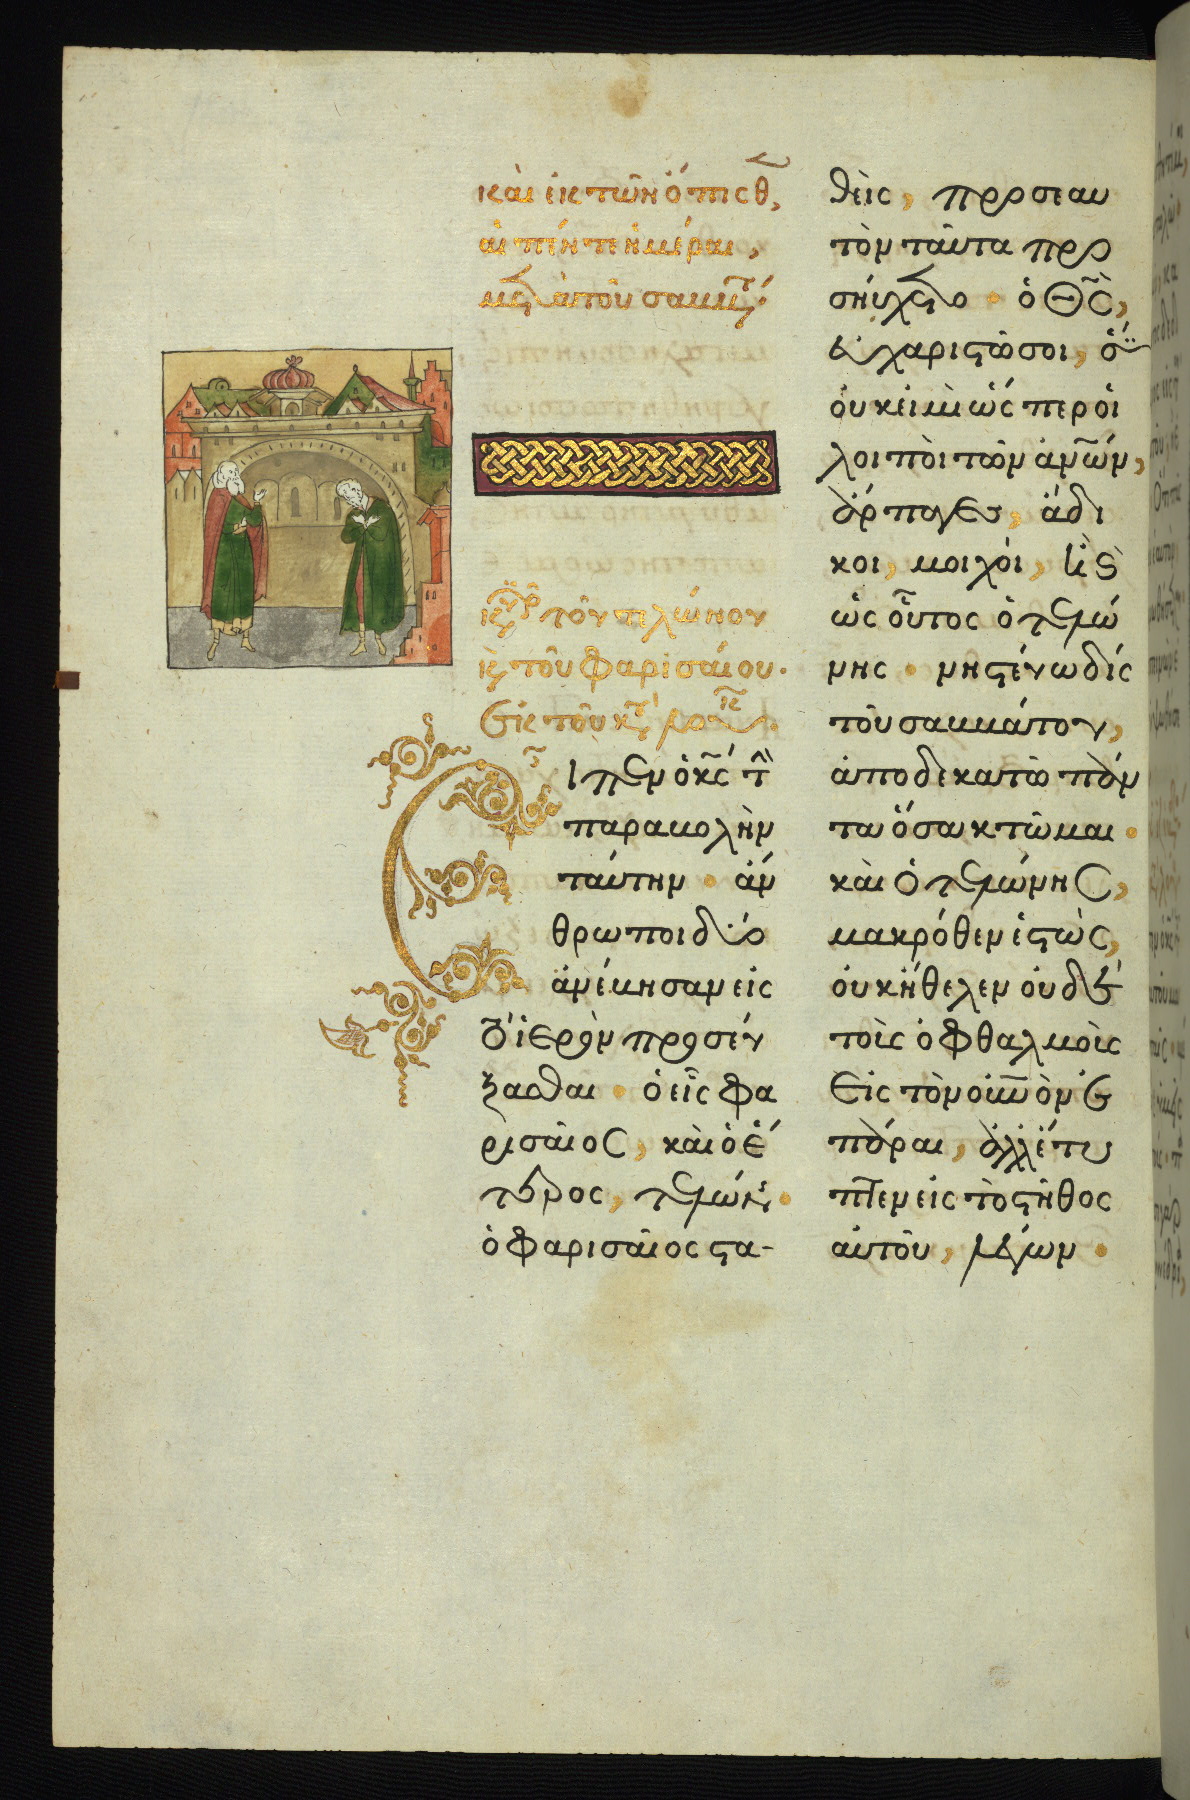 καὶ ἐκ τῶν ὄπισθ,
αἱ πέντε ἡμέραι,
τοῦ σαββ
Κυρ τοῦ τελώνου
κ τοῦ φαρισαίου.
Ἐκ τοῦ κτ λουκ.
Εἶπεν ὁ κς τὴ
παραβολὴν
ταύτην · ἄν
θρωποι δύο
ἀνέβησαν εἰς
τὸ ἱερὸν προσεύ
ξασθαι · ὁ εἷς φα
ρισαῖος, καὶ ὁ ἕ
τερος, τελώνης ·
ὁ φαρισαῖος στα-
θεὶς, πρὸς ἑαυ
τὸν ταῦτα προ
σηύχετο · ὁ Θς,
εὐχαριστῶ σοι, ὅτι
οὐκ εἰμὶ ὥσπερ οἱ
λοιποὶ τῶν ἀνῶν,
ἅρπαγες, ἄδι
κοι, μοιχοί, ἢ κ
ὡς οὗτος ὁ τελώ
νης · νηστεύω δίς
τοῦ σαββάτου,
ἀποδεκατῶ πάν
τα ὅσα κτῶμαι ·
καὶ ὁ τελώνης,
μακρόθεν ἑστὼς,
οὐκ ἤθελεν οὐδὲ
τοὺς ὀφθαλμοὺς
εἰς τὸν οὐνὸν ἐ
πάραι, ἀλλ' ἔτυ
πτεν εἰς τὸ στῆθος
αὐτοῦ, λέγων ·